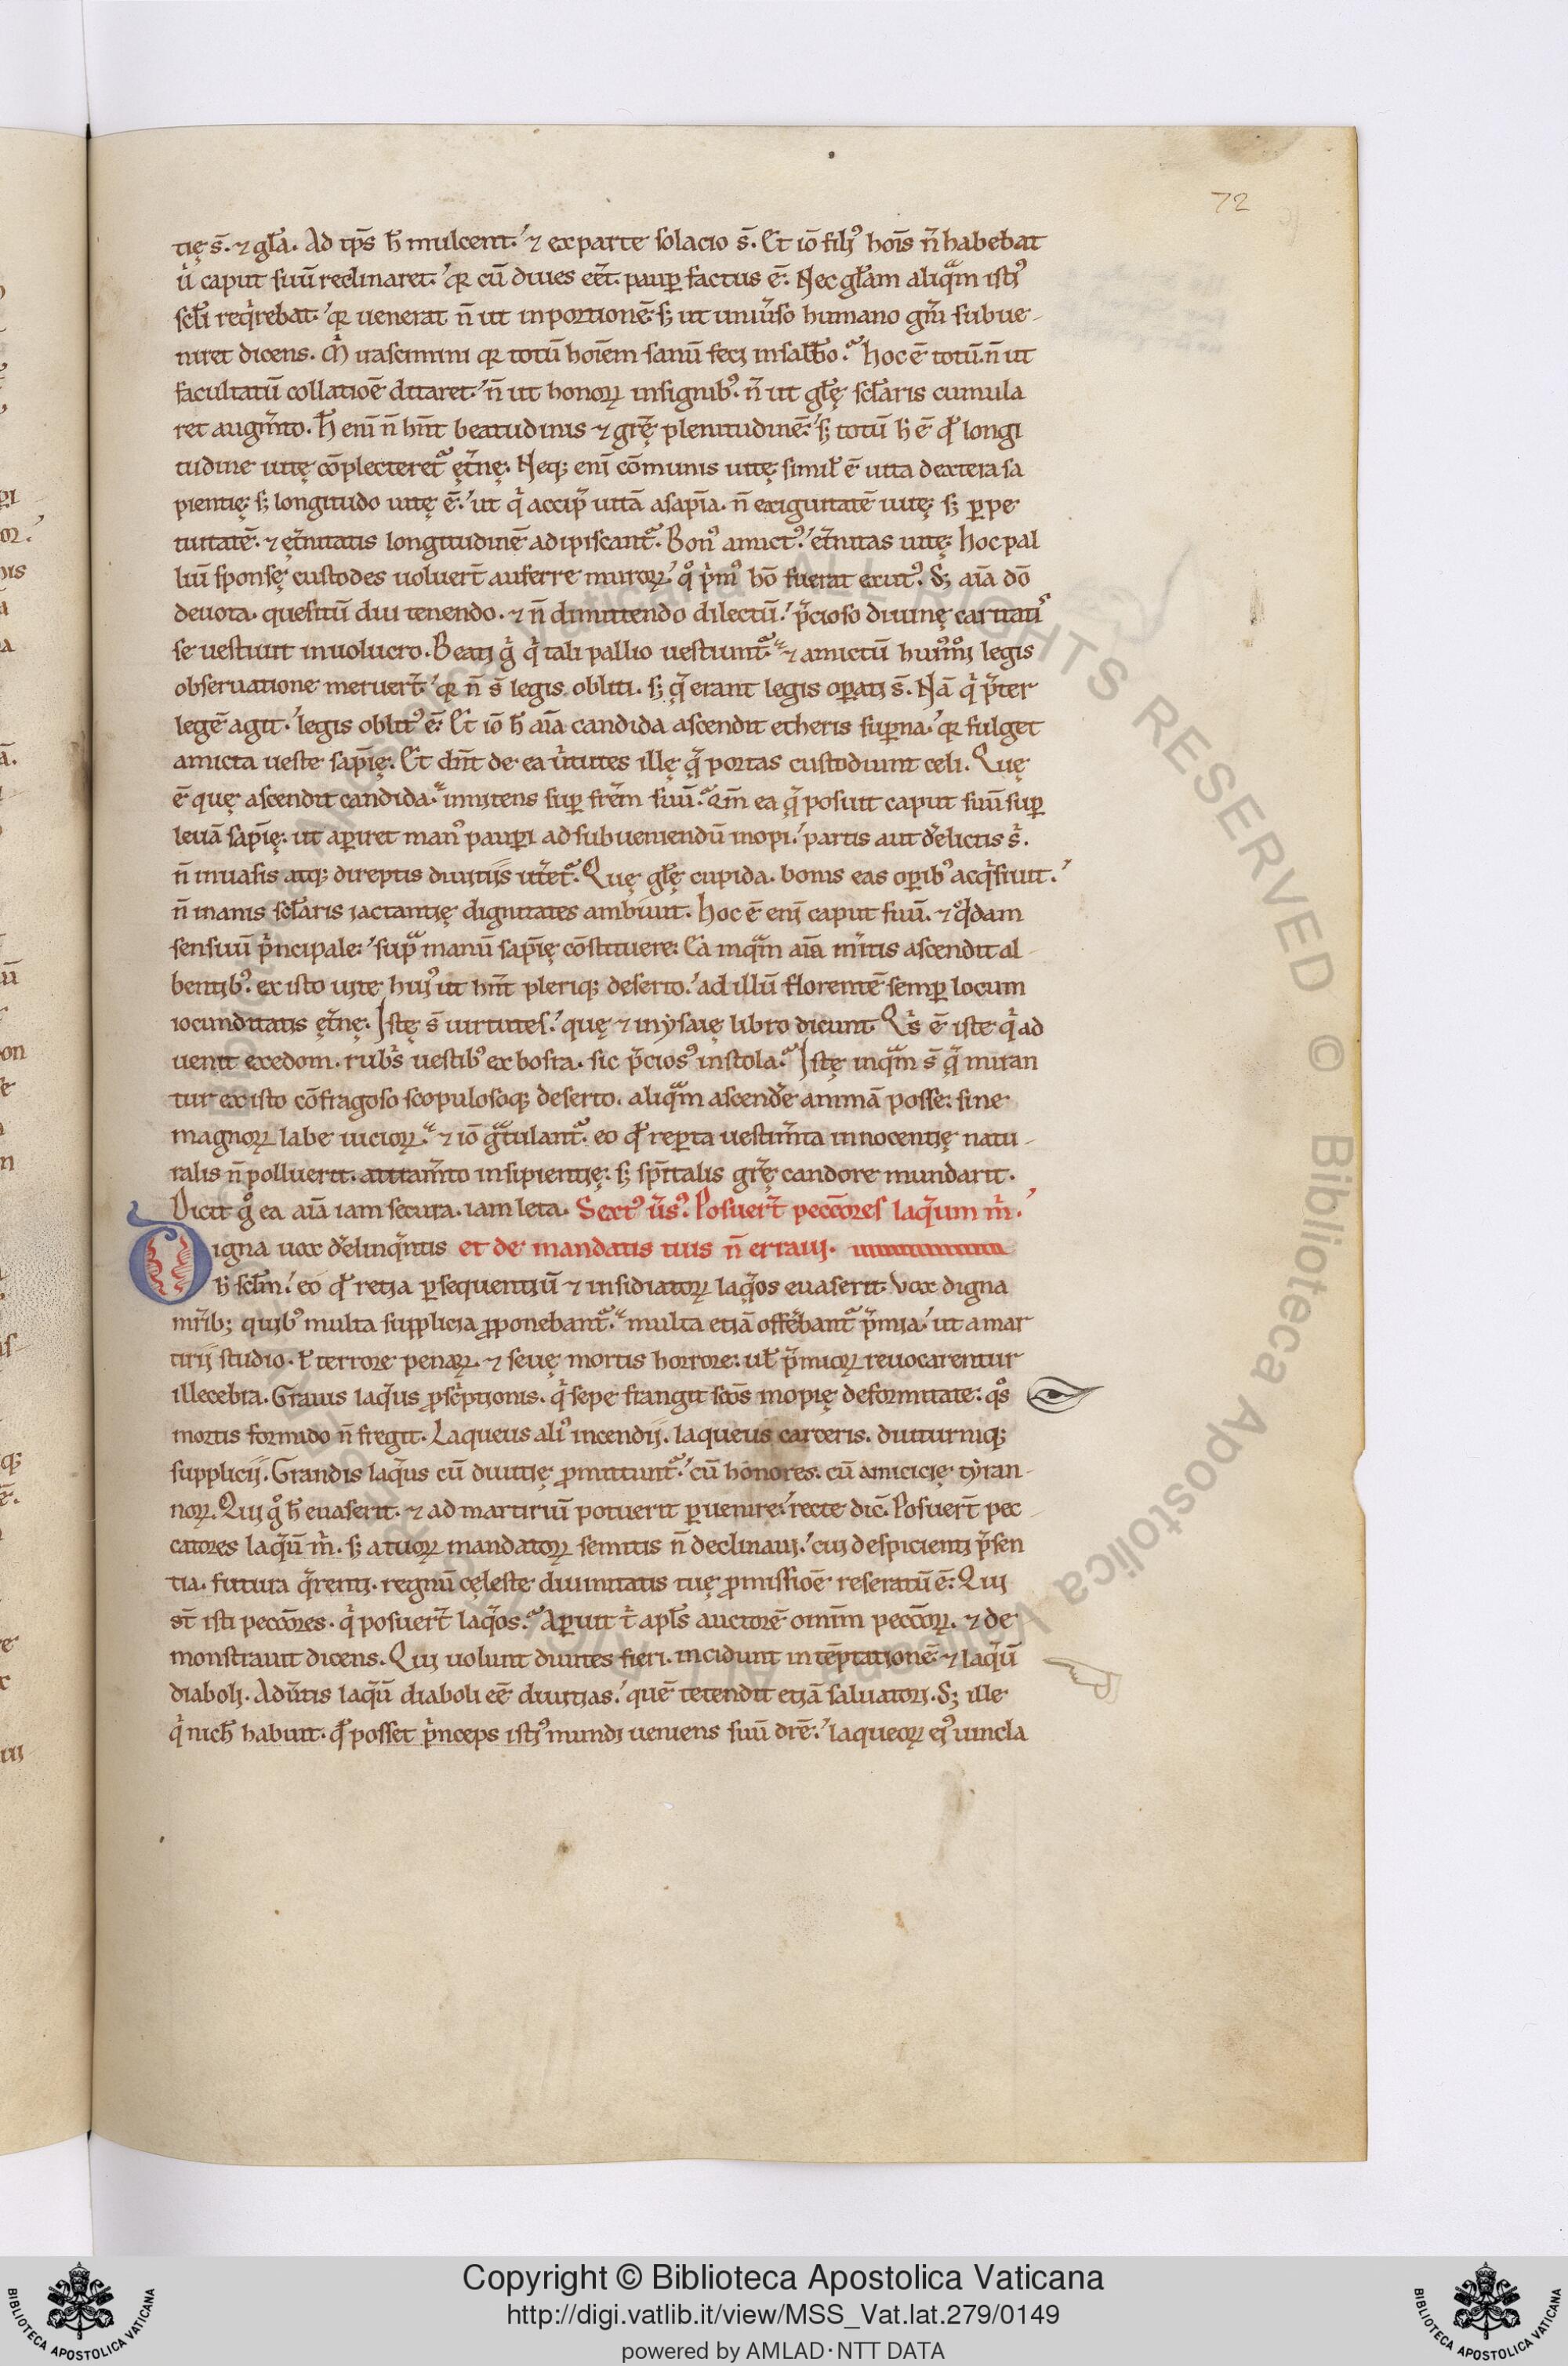 72
tię s̄. ⁊ gl̄a. Ad tp̄s h̄ mulcent. ⁊ ex parte solacio s̄. Et iō filiꝰ hoīs n̄ habebat
u̇ caput suū reclinaret. qr cū diues eēt. paup̲ factus ē. Nec gl̄am aliqᵃm istiꝰ
scl̄i reqͥrebat. qr uenerat n̄ ut in portionē sꝫ ut uniu̇so humano gn̄i subue-
niret dicens. M̊ irascimini qr totū hoīem sanū feci in sabb̄o. hoc ē totū. n̄ ut
facultatū collatioē ditaret. n̄ ut honoꝝ insignibꝰ. n̄ ut gl̄ę scl̄aris cumula
ret augm̄to. H̄ eni n̄ hn̄t beatudinis ⁊ gr̄ę plenitudinē. sꝫ totū h̄ ē qd̄ longi
tudine uitę cōplecteretᷣ ęt̄nę. Neqꝫ eni cōmunis uitę simil̄ ē uita dextera sa
pientię: sꝫ longitudo uitę ē. ut qͥ accip̄ uitā a sapīa. n̄ exiguitatē uitę: sꝫ ꝑpe
tuitatē. ⁊ ęt̄nitatis longitudinē adipiscantᷣ. Bonꝰ amictꝰ. ęt̄nitas uitę. hoc pal
liū sponsę custodes uoluer̄t auferre muroꝝ. qͦ pͥmꝰ hō fuerat exutꝰ. Sꝫ aīa dō
deuota. quesitū diu tenendo. ⁊ n̄ dimittendo dilectū. p̄cioso diuinę caritatis
se uestiuit inuolucro. Beati gͥ qͥ tali pallio uestiuntᷣ. ⁊ amictū huiꝰmōi legis
obseruatione meruer̄t. qr n̄ s̄ legis obliti. sꝫ q̄ erant legis oꝑati s̄. Nā qͥ p̄ter
legē agit. legis oblitꝰ ē. Et iō h̄ aīa candida ascendit etheris suꝑna. qr fulget
amicta ueste sapīę. Et dn̄t de ea u̇tutes illę q̄ portas custodiunt celi. Quę
ē quę ascendit candida. innitens suꝑ fr̄em suū. Qm̄ ea q̄ posuit caput suū suꝑ
leuā sapīę: ut aꝑiret manꝰ pauꝑi ad subueniendū inopi. partis aut delictis s̄.
n̄ inuasis atqꝫ direptis diuitijs ut̄etᷣ. Quę gl̄ę cupida. bonis eas oꝑibꝰ acqͥsiuit.
n̄ inanis scl̄aris iactantię dignitates ambiuit. Hoc ē eni caput suū. ⁊ qͦddam
sensuū pͥncipale: supᵃ manū sapīę cōstituere: Ea inqᵃm aīa m̄itis ascendit al-
bentibꝰ. ex isto uite huiꝰ ut hn̄t pleriqꝫ deserto. ad illū florentē semꝑ locum
iocunditatis ęt̄nę. Istę s̄ uirtutes. quę ⁊ in ysaię libro dicunt. Qͥs ē iste qͥ ad
uenit ex edom. rub̄s uestibꝰ ex bosra. sic p̄ciosꝰ in stola. Istę inqᵃm s̄ q̄ miran
tur ex isto cōfragoso scopulosoqꝫ deserto. aliqᵃm ascendē animā posse: sine
magnoꝝ labe uicioꝝ. ⁊ iō gᵃtulantᷣ. eo qd̄ reꝑta uestim̄ta innocentię natu-
ralis n̄ polluerit. attam̄to insipientię: sꝫ sp̄italis gr̄ę candore mundarit.
Dicit gͦ ea aīa iam secura. iam leta. Sextꝰ u̇sꝰ. Posuer̄t pecc̄ores laq̄um m̄.
Digna uox delinq̄ntis et de mandatis tuis n̄ erraui.
h̄ scl̄m. eo qd̄ retia ꝑsequentiū ⁊ insidiatoꝝ laq̄os euaserit. Vox digna
mr̄ibꝫ quibꝰ multa supplicia ꝓponebantᷣ. multa etiā offēbantᷣ p̄mia. ut a mar
tirij studio. l̄ terrore penaꝝ. ⁊ seuę mortis horrore: ul̄ p̄mioꝝ reuocarentur
illecebra. Grauis laq̄us ꝓscͥptionis. qͥ sepe frangit sc̄os inopię deformitate: qͦs
mortis formido n̄ fregit. Laqueus aliꝰ incendij. laqueus carceris. diuturniqꝫ
supplicij. Grandis laq̄us cū diuitię ꝓmittuntᷣ. cū honores. cū amicicię tyran-
noꝝ. Qui gͦ h̄ euaserit. ⁊ ad martiriū potuerit ꝑuenire: recte dic̄. Posuer̄t pec-
catores laq̄ū m̊. sꝫ a tuoꝝ mandatoꝝ semitis n̄ declinaui. cui despicienti p̄sen
tia. futura q̄renti. regnū cęleste diuinitatis tuę ꝓmissioē reseratū ē. Qui
st̄ isti pecc̄ores. qͥ posuer̄t laq̄os. Aꝑuit tͥ apl̄s auctorē omīm pecc̄oꝝ. ⁊ de
monstrauit dicens. Qui uolunt diuites fieri. incidunt in tēptationē ⁊ laq̄ū
diaboli. Adu̇tis laq̄ū diaboli eē diuitias. quē tetendit etiā saluatori. Sꝫ ille
qͥ nich̄ habuit. qd̄ posset pͥnceps istiꝰ mundi ueniens suū dr̄e. laqueoꝝ eiꝰ uincla
Copyright © Biblioteca Apostolica Vaticana
http://digi.vatlib.it/view/MSS_Vat.lat.279/0149
powered by AMLAD·NTT DATA
BIBLIOTECA APOSTOLICA VATICANA
BIBLIOTECA APOSTOLICA VATICANA